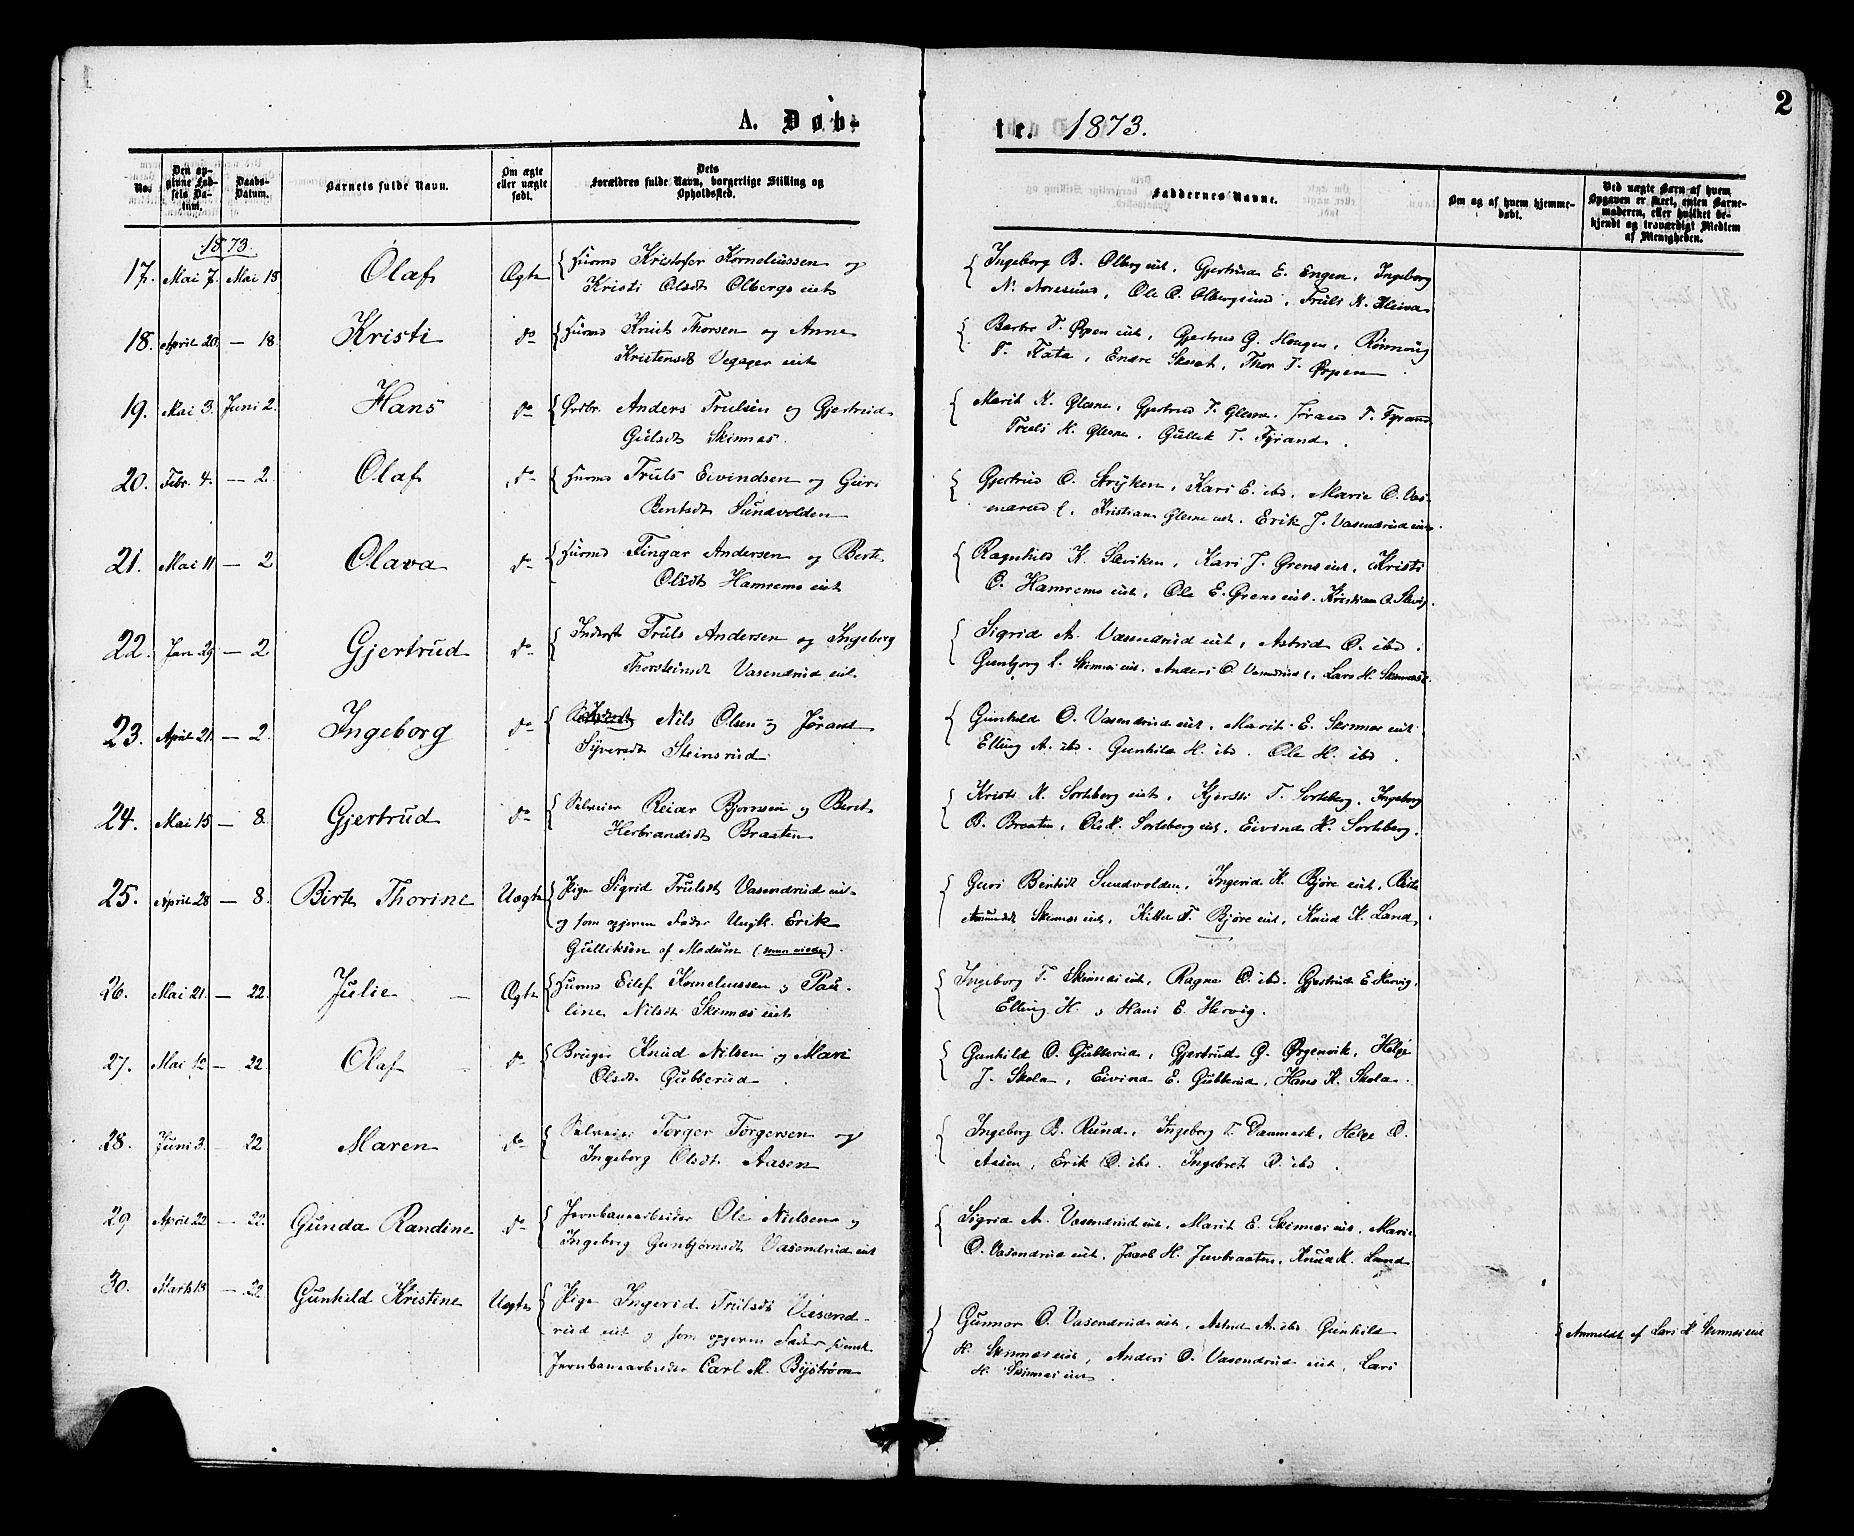 A. Døb-
te. 1873.
2
No.
Den op-
givne Fød-
sels Da-
tum.
Daabs-
Datum.
Barnets fulde Navn.
Om ægte
eller uægte
født.
Dets
Forældres fulde Navn, borgerlige Stilling og
Opholdssted.
Faddernes Navne.
Om og af hvem hjemme-
døbt.
Ved uægte Barn af hvem
Opgaven er skeet, enten Barne-
moderen, eller hvilket be-
kjendt og troværdigt Medlem
af Menigheden.
1873.
17. Mai 7. Mai 18 Olaf Ægte Huusmd Kristofer Korneliussen og
Kristi Olsdt Olbergs eiet
Ingeborg B. Olberg eiet, Gjertrud E. Engen, Ingeborg
N. Noresund, Ole O. Olbergsund, Truls K.
18. April 20. — 18. Kristi do Huusmd Knut Thorsen og Anne
Kristensdt Vegager eiet
T. Ørpen eiet, Gjertrud G. Haugen, Rønnaug
T. Kata, Endre Skust, Thor T. Ørpen
19. Mai 3. Juni 2. Hans do Grdbr. Anders Trulsen og Gjertrud
Gulsdt Skinnes.
Marit K. Glesne, Gjertrud T. Glesne. Jørand T. Fyrand
Truls K. Glesne, Gullik T. Fyrand.
20. Febr. 4. — 2. Olaf do Huusmd Truls Eivindsen og Guri
Bentsdt Sundvolden
Gjertrud O. Stryken, Kari E. ibd, Marie O. Vas-
enrud, Kristian Glesne eiet. Erik J. Vasendrud eiet.
21. Mai 11 — 2 Olava do Huusmd Fingar Andersen og Berte
Olsdt Hamrems eiet
Ragnhild K. Sævikens, Kari J. Grens eiet, Kristi
O. Hamrems eiet, Ole E. Grens eiet. Kristian O.
22. Jan 29 — 2 Gjertrud do Inderst Truls Andersen og Ingeborg
Thorsteinsdt Vasendrud eiet.
Sigrid A. Vasendrud eiet, Astrid O. ibd.
Gunbjørg L. Skinnes eiet. Anders O. Vasendrud, Lars H. Skinnes
23. April 21. — 2. Ingeborg do Nils Olsen og Jørand
Syversdt Steinsrud.
Gunhild O. Vasendrud eiet, Marit E. Skinnes eiet
Elling A. ibd. Gunhild H. ibd. Ole H. ibd.
24. Mai 15 — 8. Gjertrud do Selveier Reiar Bjørnsen og Berit
Herbrandsdt Braaten
Kristi K. Sorteberg eiet, Kjersti T. Sorteberg, Ingeborg
B. Braaten, Ole K. Sorteberg eiet, Eivind K. Sorteberg.
25. April 28 — 8. Birte Thorine Uægte Pige Sigrid Trulsdt Vasendrud eiet
og som opgiven Fader Ungk. Erik
Gulliksen af Modum
Guri Bentsdt Sundvolden, Ingerid K. Bjøre eiet,
Amundsdt Skinnes eiet, Kittel T. Bjøre eiet, Knud K. Land.
26. Mai 21. — 22. Julie Ægte Huusmd Eilef Korneliussen og Pau-
line Nilsdt Skinnes eiet
Ingeborg T. Skinnes eiet, Ragne O. ibd. Gjertrud E. Hervig,
Elling H. og Hans E. Hervig.
27. Mai 12 — 22. Olaf do Bruger Knud Nilsen og Mari
Olsdt Gubberud.
Gunhild O. Gubberud, Gjertrud G. Ørgenvik, Helge
J. Skola, Eivind E. Gubberud, Hans K. Skola.
28. Juni 3. — 22. Maren do Selveier Torger Torgersen og
Ingeborg Olsdt Aasen
Ingeborg B. Rund, Ingeborg T. Danmark, Helge O.
Aasen, Erik O. ibd. Ingebret O. ibd.
29 April 22 — 22. Gunda Randine do Jernbanearbeider Ole Nielsen og
Ingeborg Gunbjørnsdt Vasendrud eiet
Sigrid A. Vasendrud eiet, Marit E. Skinnes eiet, Marie
O. Vasendrud eiet, Jacob H. Juvbraaten, Knud K. Land
30. Marts 18 — 22 Gunhild Kristine Uægte Pige Ingerid Trulsdt Vasend-
rud eiet og som opgiven Fader svensk
Jernbanearbeider Carl M. Byström
Gunnor O. Vasendrud eiet, Astrid A. ibd Gunhild
H. Skinnes eiet, Anders O. Vasendrud eiet, Lars
H. Skinnes eiet.
Anmeldt af Lars H Skinnes eiet